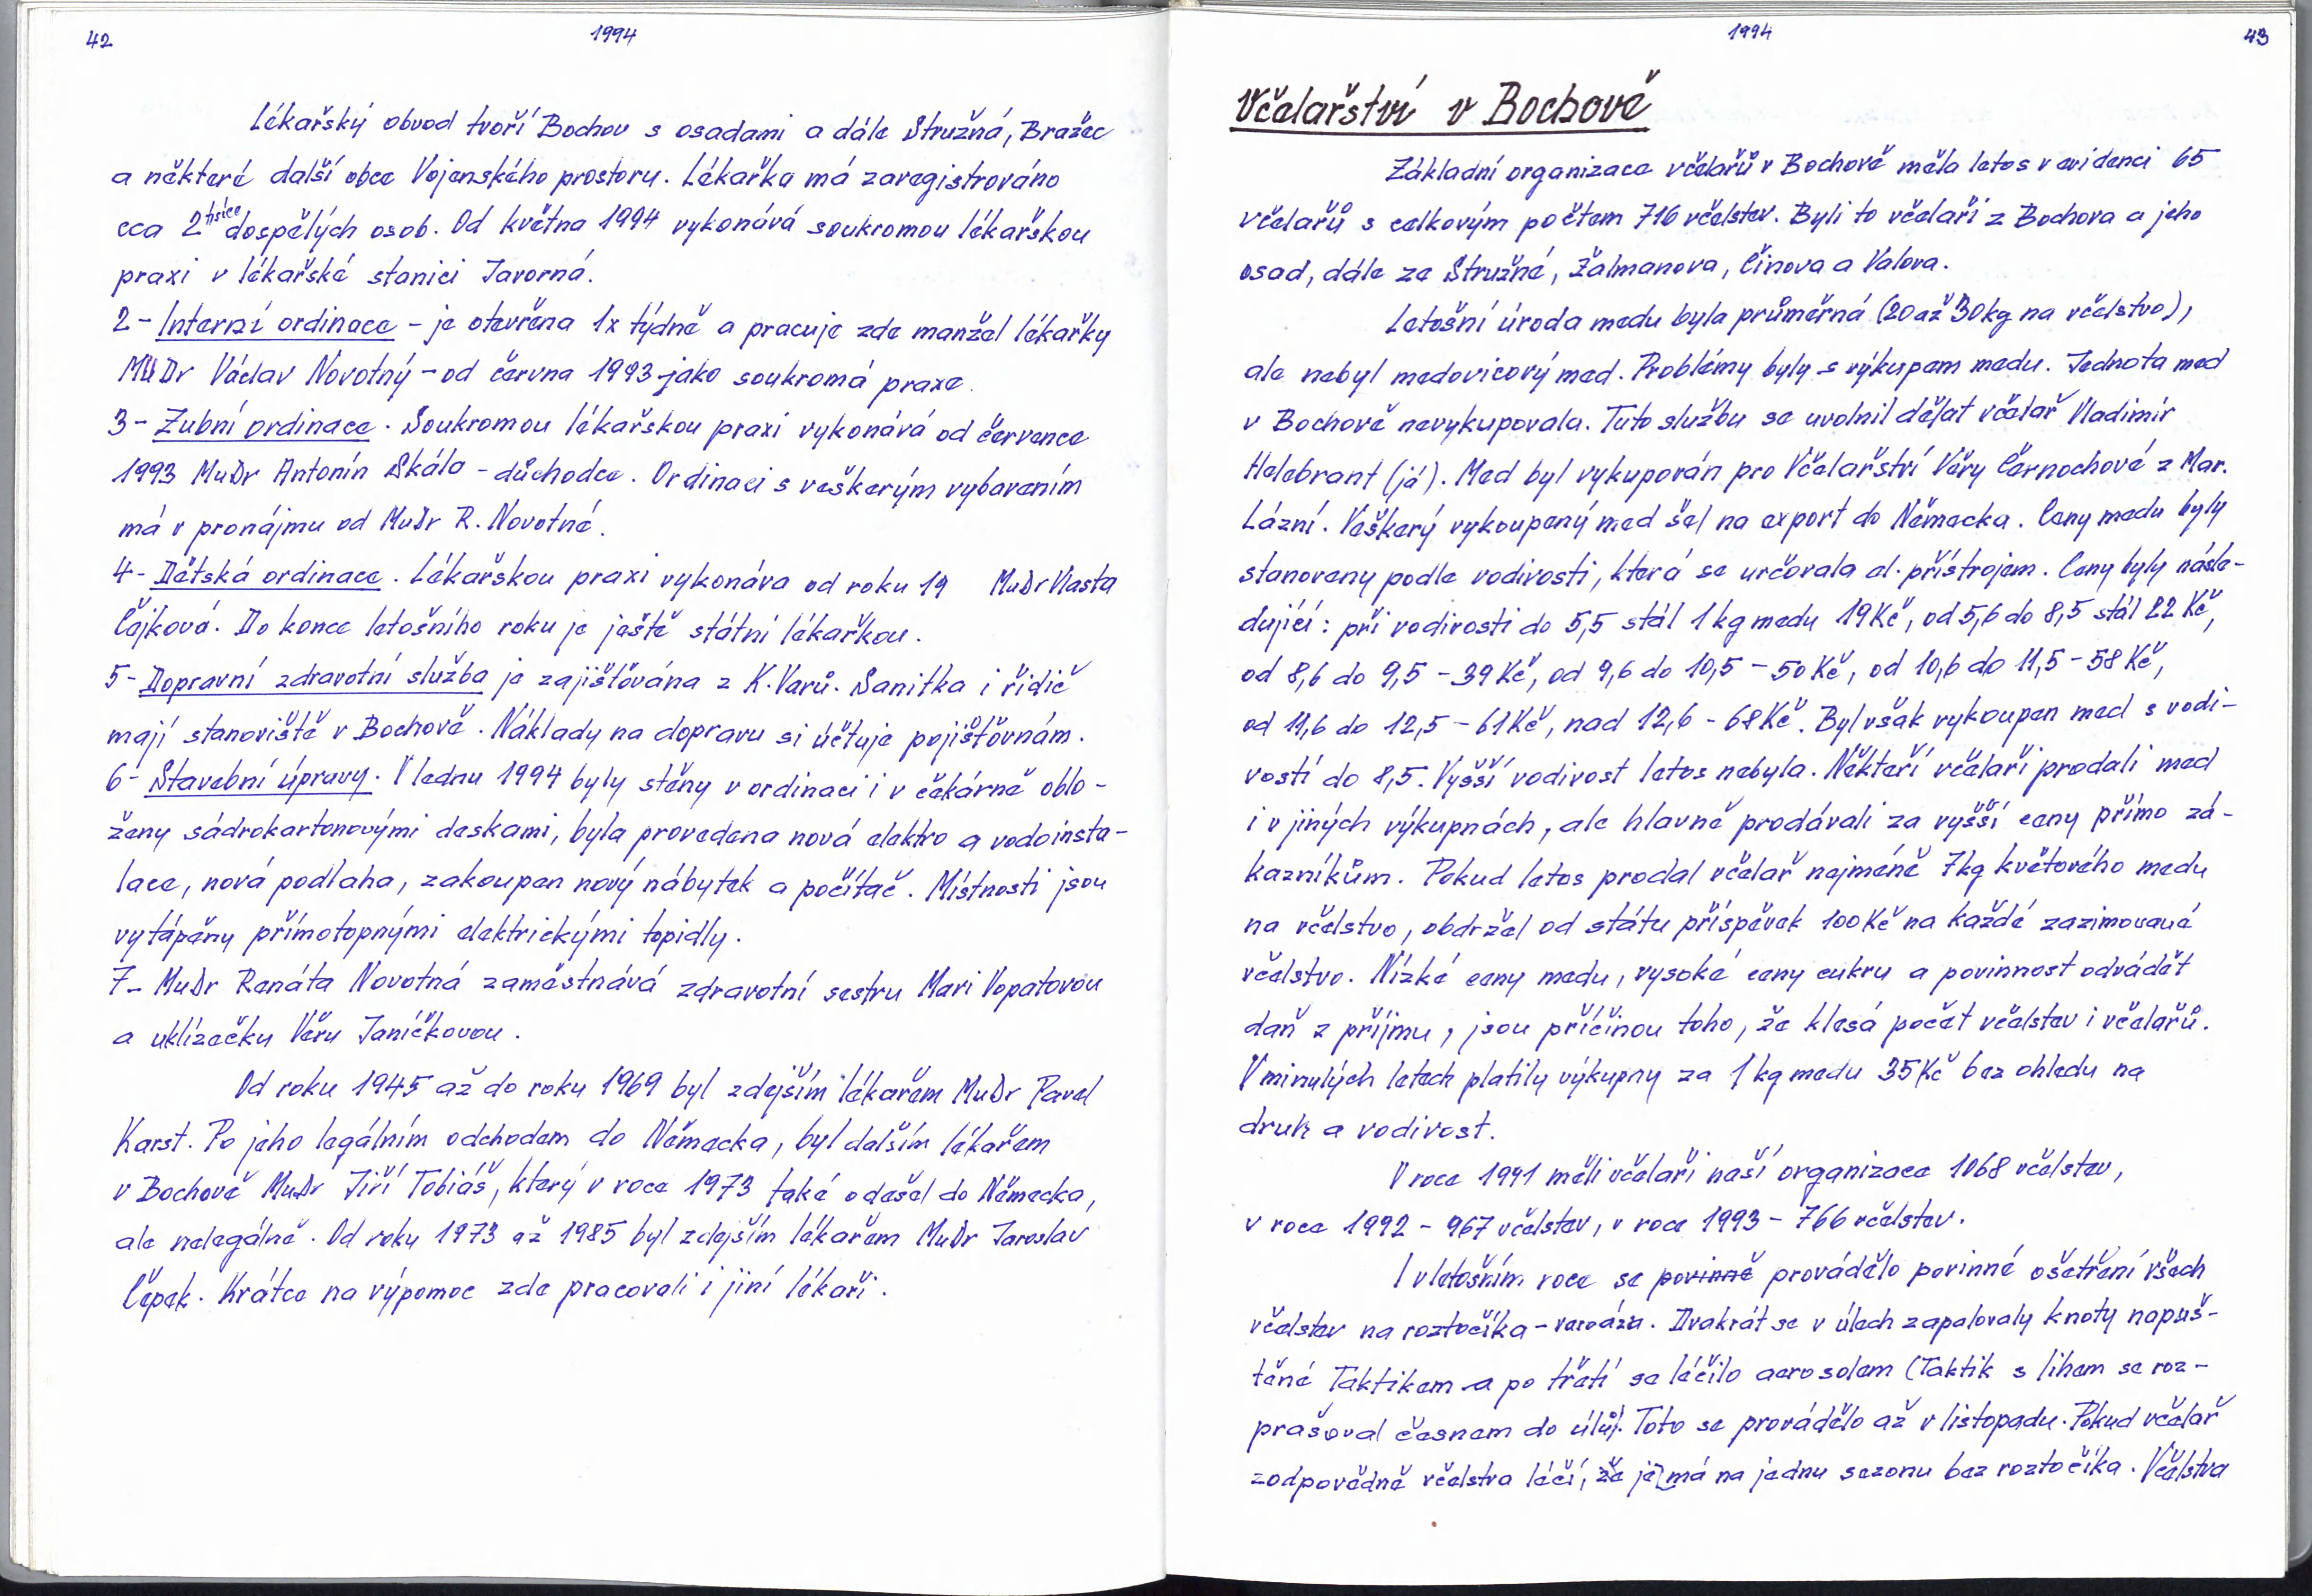 42
1994
Lékařský obvod tvoří Bochov s osadami a dále Stružná, Bražec
a některé další obce Vojenského prostoru. Lékařka má zaregistrováno
cca 2 tisíce dospělých osob. Od května 1994 vykonává soukromou lékařskou
praxi v lékařské stanici Javorná.
2 - Interní ordinace - je otevřena 1x týdně a pracuje zde manžel lékařky
MUDr Václav Novotný - od června 1993 jako soukromá praxe.
3 - Zubní ordinace. Soukromou lékařskou praxi vykonává od července
1993 MuDr Antonín Skála - důchodce. Ordinaci s veškerým vybavením
má v pronájmu od MuDr R. Novotné.
4 - Dětská ordinace. Lékařskou praxi vykonáva od roku 19 MuDr Vlasta
Čajková. Do konce letošního roku je ještě státní lékařkou.
5 - Dopravní zdravotní služba je zajišťována z K. Varů. Sanitka i řidič
mají stanoviště v Bochově. Náklady na dopravu si účtuje pojišťovnám.
6 - Stavební úpravy. V lednu 1994 byly stěny v ordinaci i v čekárně oblo-
ženy sádrokartonovými deskami, byla provedena nová elektro a vodoinsta-
lace, nová podlaha, zakoupen nový nábytek a počítač. Místnosti jsou
vytápěny přímotopnými elektrickými topidly.
7 - MuDr Renáta Novotná zaměstnává zdravotní sestru Mari Vopatovou
a uklízečku Věru Janíčkovou.
Od roku 1945 až do roku 1969 byl zdejším lékařem MuDr Pavel
Karst. Po jeho legálním odchodem do Německa, byl dalším lékařem
v Bochově MuDr Jiří Tobiáš, který v roce 1973 také odešel do Německa,
ale nelegálně. Od roku 1973 až 1985 byl zdejším lékařem MuDr Jaroslav
Čepek. Krátce na výpomoc zde pracovali i jiní lékaři.
1994
43
Včelařství v Bochově
Základní organizace včelařů v Bochově měla letos v evidenci 65
včelařů s celkovým počtem 716 včelstev. Byli to včelaři z Bochova a jeho
osad, dále ze Stružné, Žalmanova, Činova a Valova.
Letošní úroda medu byla průměrná (20 až 30 kg na včelstvo),
ale nebyl medovicový med. Problémy byly s výkupem medu. Jednota med
v Bochově nevykupovala. Tuto službu se uvolnil dělat včelař Vladimír
Helebrant (já). Med byl vykupován pro Včelařství Věry Černochové z Mar.
Lázní. Veškerý vykoupený med šel na export do Německa. Ceny medu byly
stanoveny podle vodivosti, která se určovala el. přístrojem. Ceny byly násle-
dující: při vodivosti do 5,5 stál 1 kg medu 19 Kč, od 5,6 do 8,5 stál 22 Kč,
od 8,6 do 9,5 - 39 Kč, od 9,6 do 10,5 - 50 Kč, od 10,6 do 11,5 - 58 Kč,
od 11,6 do 12,5 - 61 Kč, nad 12,6 - 68 Kč. Byl však vykoupen med s vodi-
vostí do 8,5. Vyšší vodivost letos nebyla. Někteří včelaři prodali med
i v jiných výkupnách, ale hlavně prodávali za vyšší ceny přímo zá-
kazníkům. Pokud letos prodal včelař nejméně 7 kg květového medu
na včelstvo, obdržel od státu příspěvek 100 Kč na každé zazimované
včelstvo. Nízké ceny medu, vysoké ceny cukru a povinnost odvádět
daň z příjmu, jsou příčinou toho, že klesá počet včelstev i včelařů.
V minulých letech platily výkupny za 1 kg medu 35 Kč bez ohledu na
druh a vodivost.
V roce 1991 měli včelaři naší organizace 1068 včelstev,
v roce 1992 - 967 včelstev, v roce 1993 - 766 včelstev.
I v letošním roce se povinně provádělo povinné ošetření všech
včelstev na roztočíka - varoáza. Dvakrát se v úlech zapalovaly knoty napuš-
těné Taktikem a po třetí se léčilo aerosolem (Taktik s lihem se roz-
prašoval česnem do úlů). Toto se provádělo až v listopadu. Pokud včelař
zodpovědně včelstva léčí, že je má na jednu sezonu bez roztočíka. Včelstva